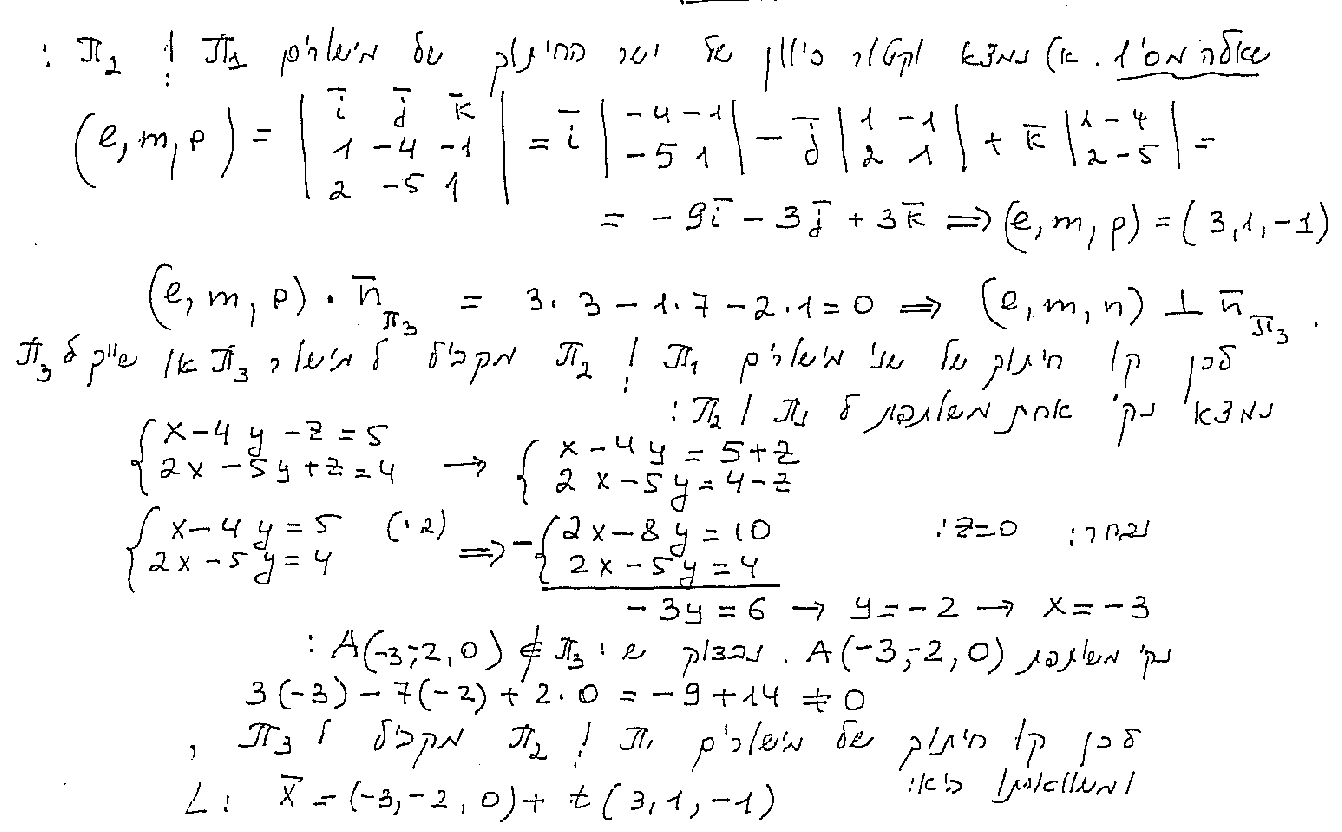 שאלה מס' 1. א) נמצא וקטור כיוון של ישר החיתוך של מישורים π₁ ו π₂ :
(e, m, p) = | i̅ j̅ k̅ ; 1 -4 -1 ; 2 -5 1 | = i̅ | -4 -1 ; -5 1 | - j̅ | 1 -1 ; 2 1 | + k̅ | 1 -4 ; 2 -5 | =
= -9i̅ - 3j̅ + 3k̅ ⇒ (e, m, p) = (3, 1, -1)
(e, m, p) · n̅_π₃ = 3·3 - 1·7 - 2·1 = 0 ⇒ (e, m, n) ⊥ n̅_π₃ .
לכן קו חיתוך של שני מישורים π₁ ו π₂ מקביל ל מישור π₃ או שייך ל π₃
נמצא נק' אחת משותפת ל π₁ ו π₂ :
{ x - 4y - z = 5 ; 2x - 5y + z = 4 → { x - 4y = 5 + z ; 2x - 5y = 4 - z
נבחר: z=0 :
{ x - 4y = 5 (·2) ; 2x - 5y = 4 ⇒ - { 2x - 8y = 10 ; 2x - 5y = 4
-3y = 6 → y = -2 → x = -3
נק' משותפת A(-3,-2,0) . נבדוק ש : A(-3,-2,0) ∉ π₃ :
3(-3) - 7(-2) + 2·0 = -9 + 14 ≠ 0
לכן קו חיתוך של מישורים π₁ ו π₂ מקביל ל π₃ ,
ומשוואתו היא:
L: x̅ = (-3, -2, 0) + t(3, 1, -1)